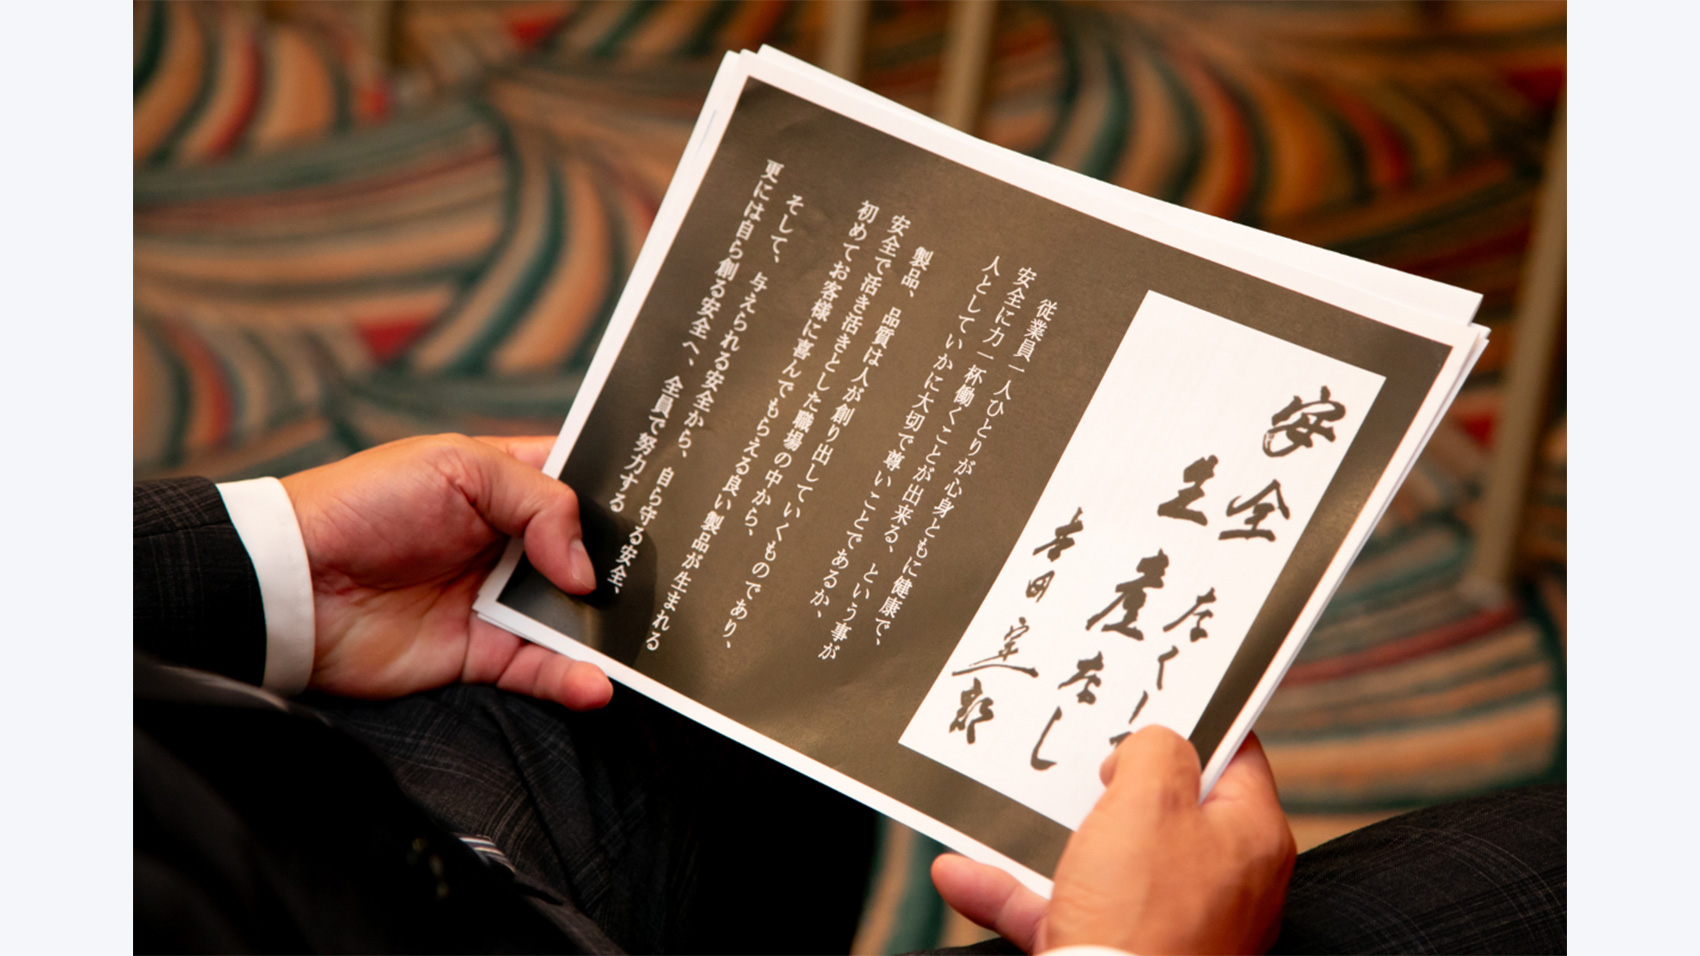 安全
なくして
生産なし
吉田定郎
従業員一人ひとりが心身ともに健康で、
安全に力一杯働くことが出来る、という事が
人としていかに大切で尊いことであるか、
製品、品質は人が創り出していくものであり、
安全で活き活きとした職場の中から、
初めてお客様に喜んでもらえる良い製品が生まれる
そして、与えられる安全から、自ら守る安全、
更には自ら創る安全へ、全員で努力する